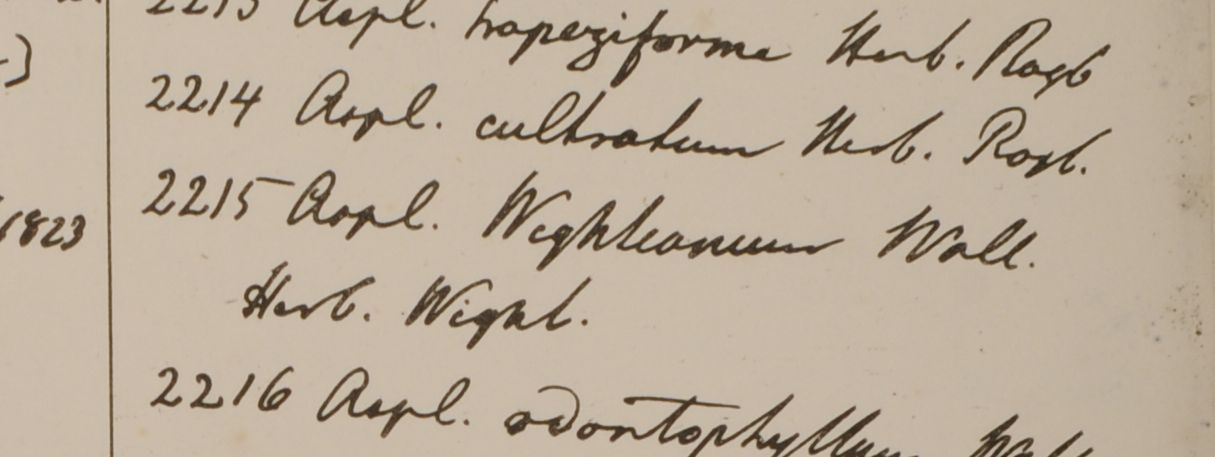 2213 Aspl. trapeziforme Herb. Roxb
2214 Aspl. cultratum Herb. Roxb.
2215 Aspl. Wightianum Wall.
1823
Herb. Wight.
2216 Aspl. odontophyllum Wall